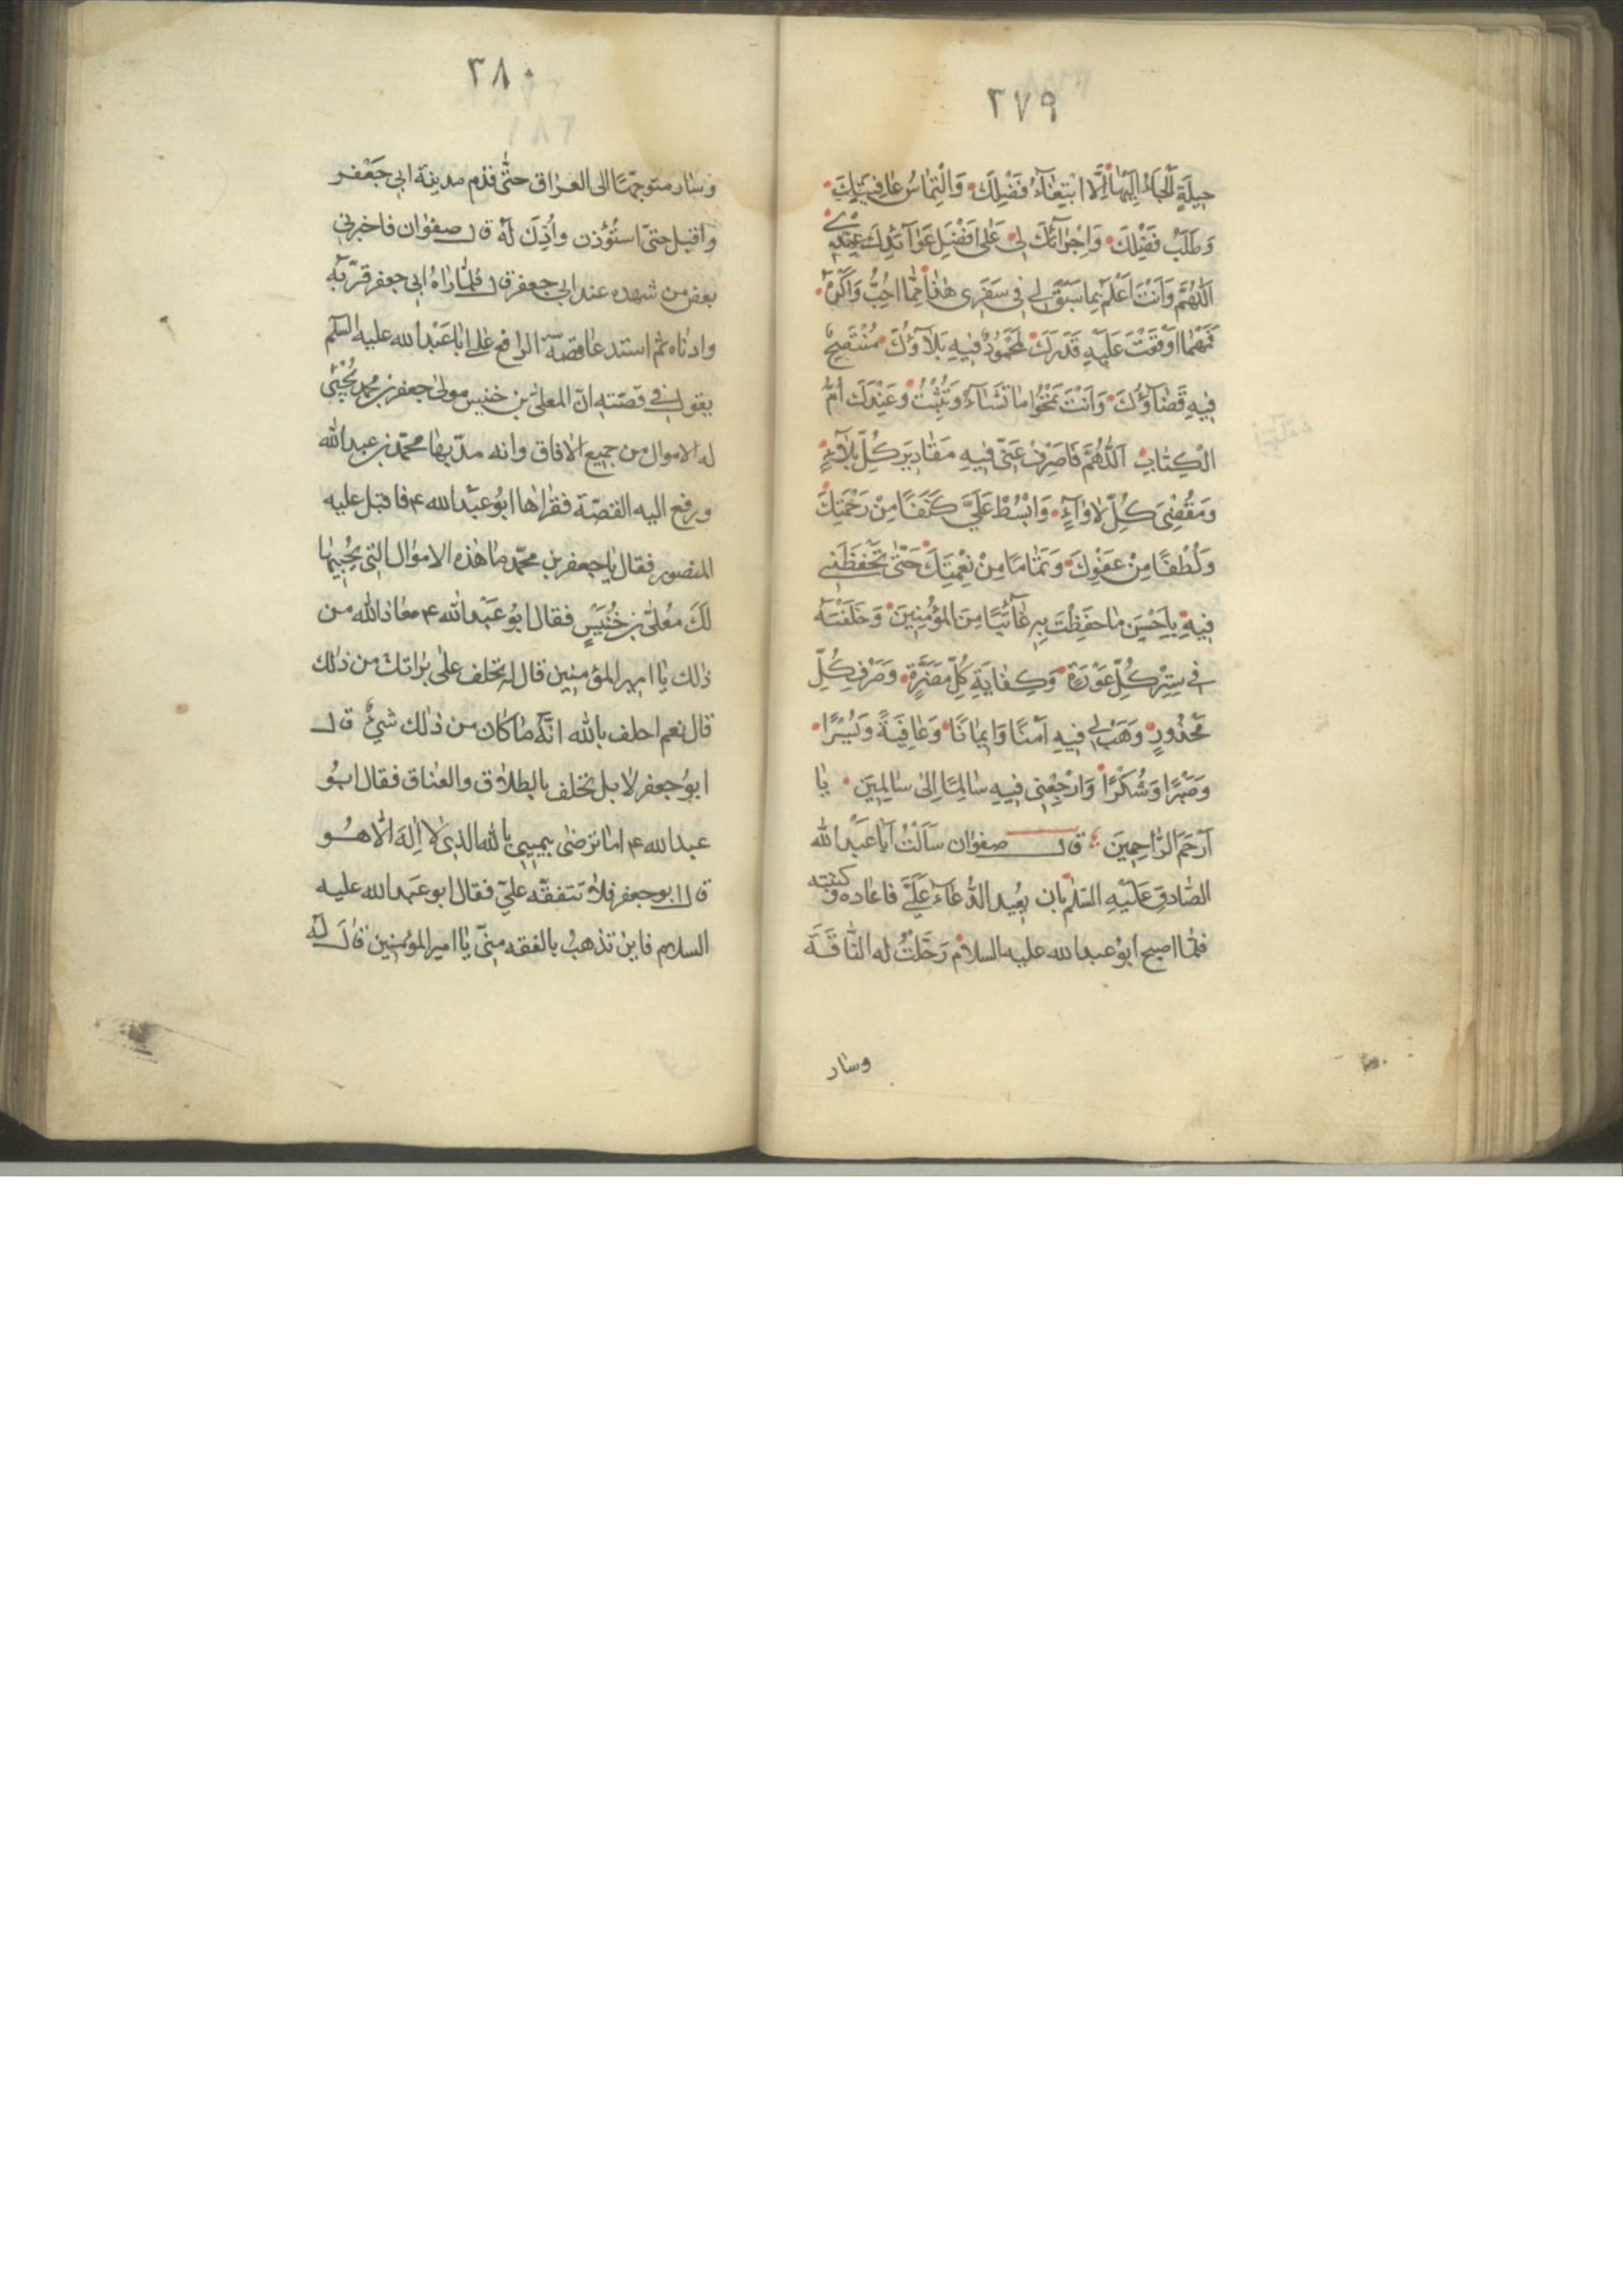 ٢٧٩
حِيلَةٍ اَلْجَاءُ اِلَيْهَا اِلَّا ابْتِغَاءُ فَضْلِكَ وَالْتِمَاسُ عَافِيَتِكَ
وَطَلَبُ فَضْلِكَ وَاِجْرَائُكَ لِي عَلَى اَفْضَلِ عَوَآئِدِكَ عِنْدِي
اَللّٰهُمَّ وَاَنْتَ اَعْلَمُ بِمَا سَبَقَ لِي فِي سَفَرِي هٰذَا مِمَّا اُحِبُّ وَاَكْرَهُ
فَمَهْمَا اَوْقَعْتَ عَلَيْهِ قَدَرَكَ لَمَحْمُودٌ فِيهِ بَلَآؤُكَ مُنْتَصِحٌ
فِيهِ قَضَآؤُكَ وَاَنْتَ تَمْحُوا مَا تَشَاءُ وَتُثْبِتُ وَعِنْدَكَ اُمُّ
الْكِتَابِ اَللّٰهُمَّ فَاصْرِفْ عَنِّي فِيهِ مَقَادِيرَ كُلِّ بَلَآءٍ
وَمَقْضِيَّ كُلِّ لَاوَآءٍ وَابْسُطْ عَلَيَّ كَنَفًا مِنْ رَحْمَتِكَ
وَلُطْفًا مِنْ عَفْوِكَ وَتَمَامًا مِنْ نِعْمَتِكَ حَتّٰى تَحْفَظَنِي
فِيهِ بِاَحْسَنِ مَا حَفِظْتَ بِهِ غَآئِبًا مِنَ الْمُؤْمِنِينَ وَخَلَفْتَهُ
فِي سِتْرِ كُلِّ عَوْرَةٍ وَكِفَايَةِ كُلِّ مَضَرَّةٍ وَصَرْفِ كُلِّ
مَحْذُورٍ وَهَبْ لِي فِيهِ اَمْنًا وَاِيمَانًا وَعَافِيَةً وَيُسْرًا
وَصَبْرًا وَشُكْرًا وَارْجِعْنِي فِيهِ سَالِمًا اِلٰى سَالِمِينَ يَا
اَرْحَمَ الرَّاحِمِينَ قال صفوان سَاَلْتُ اَبَا عَبْدِ الله
الصَّادِقَ عَلَيْهِ السَّلٰمُ بان يعيد الدُّعَاءَ عَلَيَّ فاعاده وكتبته
فلمّا اصبح ابو عبد الله عليه السلام رَحَلْتُ له النَّاقَةَ
وسار
٣٨٠
وسار متوجّهًا الى العراق حتّى قدم مدينة ابي جَعْفر
واقبل حتى استُؤذن واُذِنَ لَهُ قال صفوان فاخبرني
بعض من شهده عند ابي جعفر قال فلمّا راٰهُ ابي جعفر قرّبه
وادناه ثم استدعا قصة الرافع على ابا عَبْد الله عليه السلم
يقول في قصّته انّ المعلى بن خنيس مولى جعفر بن محمد يُجْبى
له الاموال من جميع الافاق وانه مدّ بها محمّد بن عبد الله
ورفع اليه القصّة فقراها ابُو عَبْد الله ع فاقبل عليه
المنصور فقال يا جعفر بن محمّد ما هذه الاموال التي يُجْبِيها
لَكَ مُعلّى بن خُنَيْسٍ فقال ابو عَبْد الله ع معاذ الله من
ذٰلك يا امير المؤمنين قال له تحلف على براتك من ذٰلك
قال نعم احلف بالله انّه ما كان من ذٰلك شيءٌ قال
ابو جعفر لا بل تحلف بالطلاق والعتاق فقال ابو
عبد الله ع اما ترضى بيميني بالله الذي لا اِلٰهَ الّا هُو
قال ابو جعفر فلا تتفقّه عليّ فقال ابو عبد الله عليه
السلام فاين تذهبُ بالفقه منّي يا امير المؤمنين قَالَ لَهُ